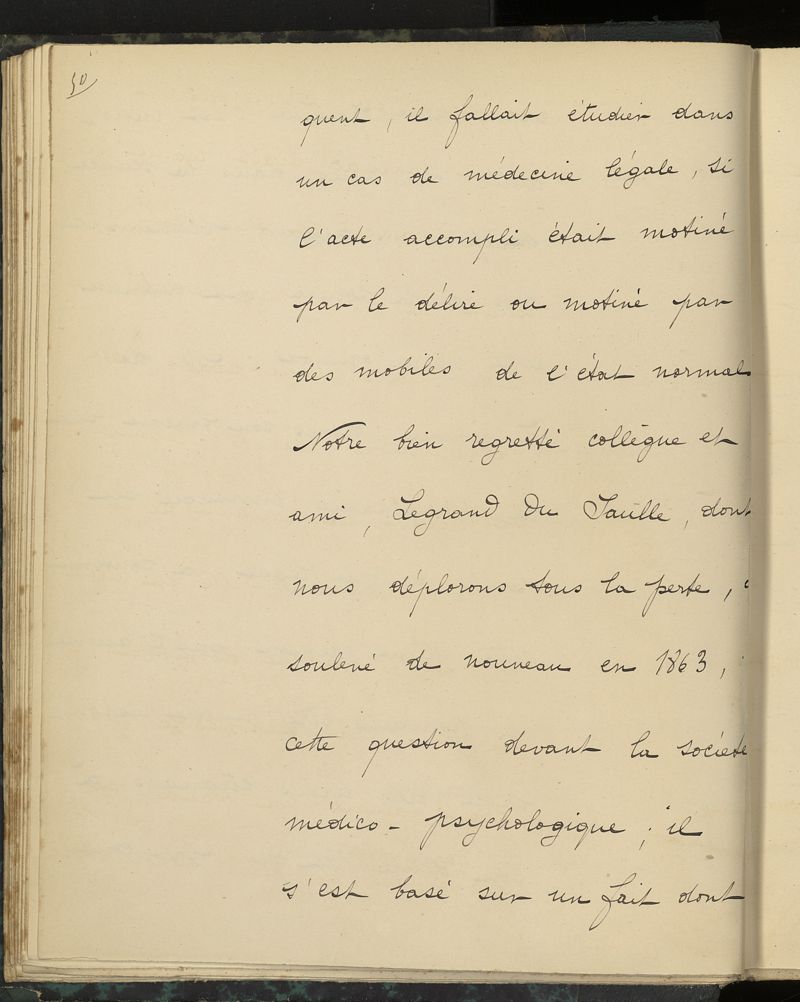 50
quent, il fallait étudier dans
un cas de médecine légale, si
l'acte accompli était motivé
par le délire ou motivé par
des mobiles de l'état normal
Notre bien regretté collègue et
ami, Legrand du Saulle, dont
nous déplorons tous la perte,
soulevé de nouveau en 1863,
cette question devant la société
médico-psychologique ; il
s'est basé sur un fait dont